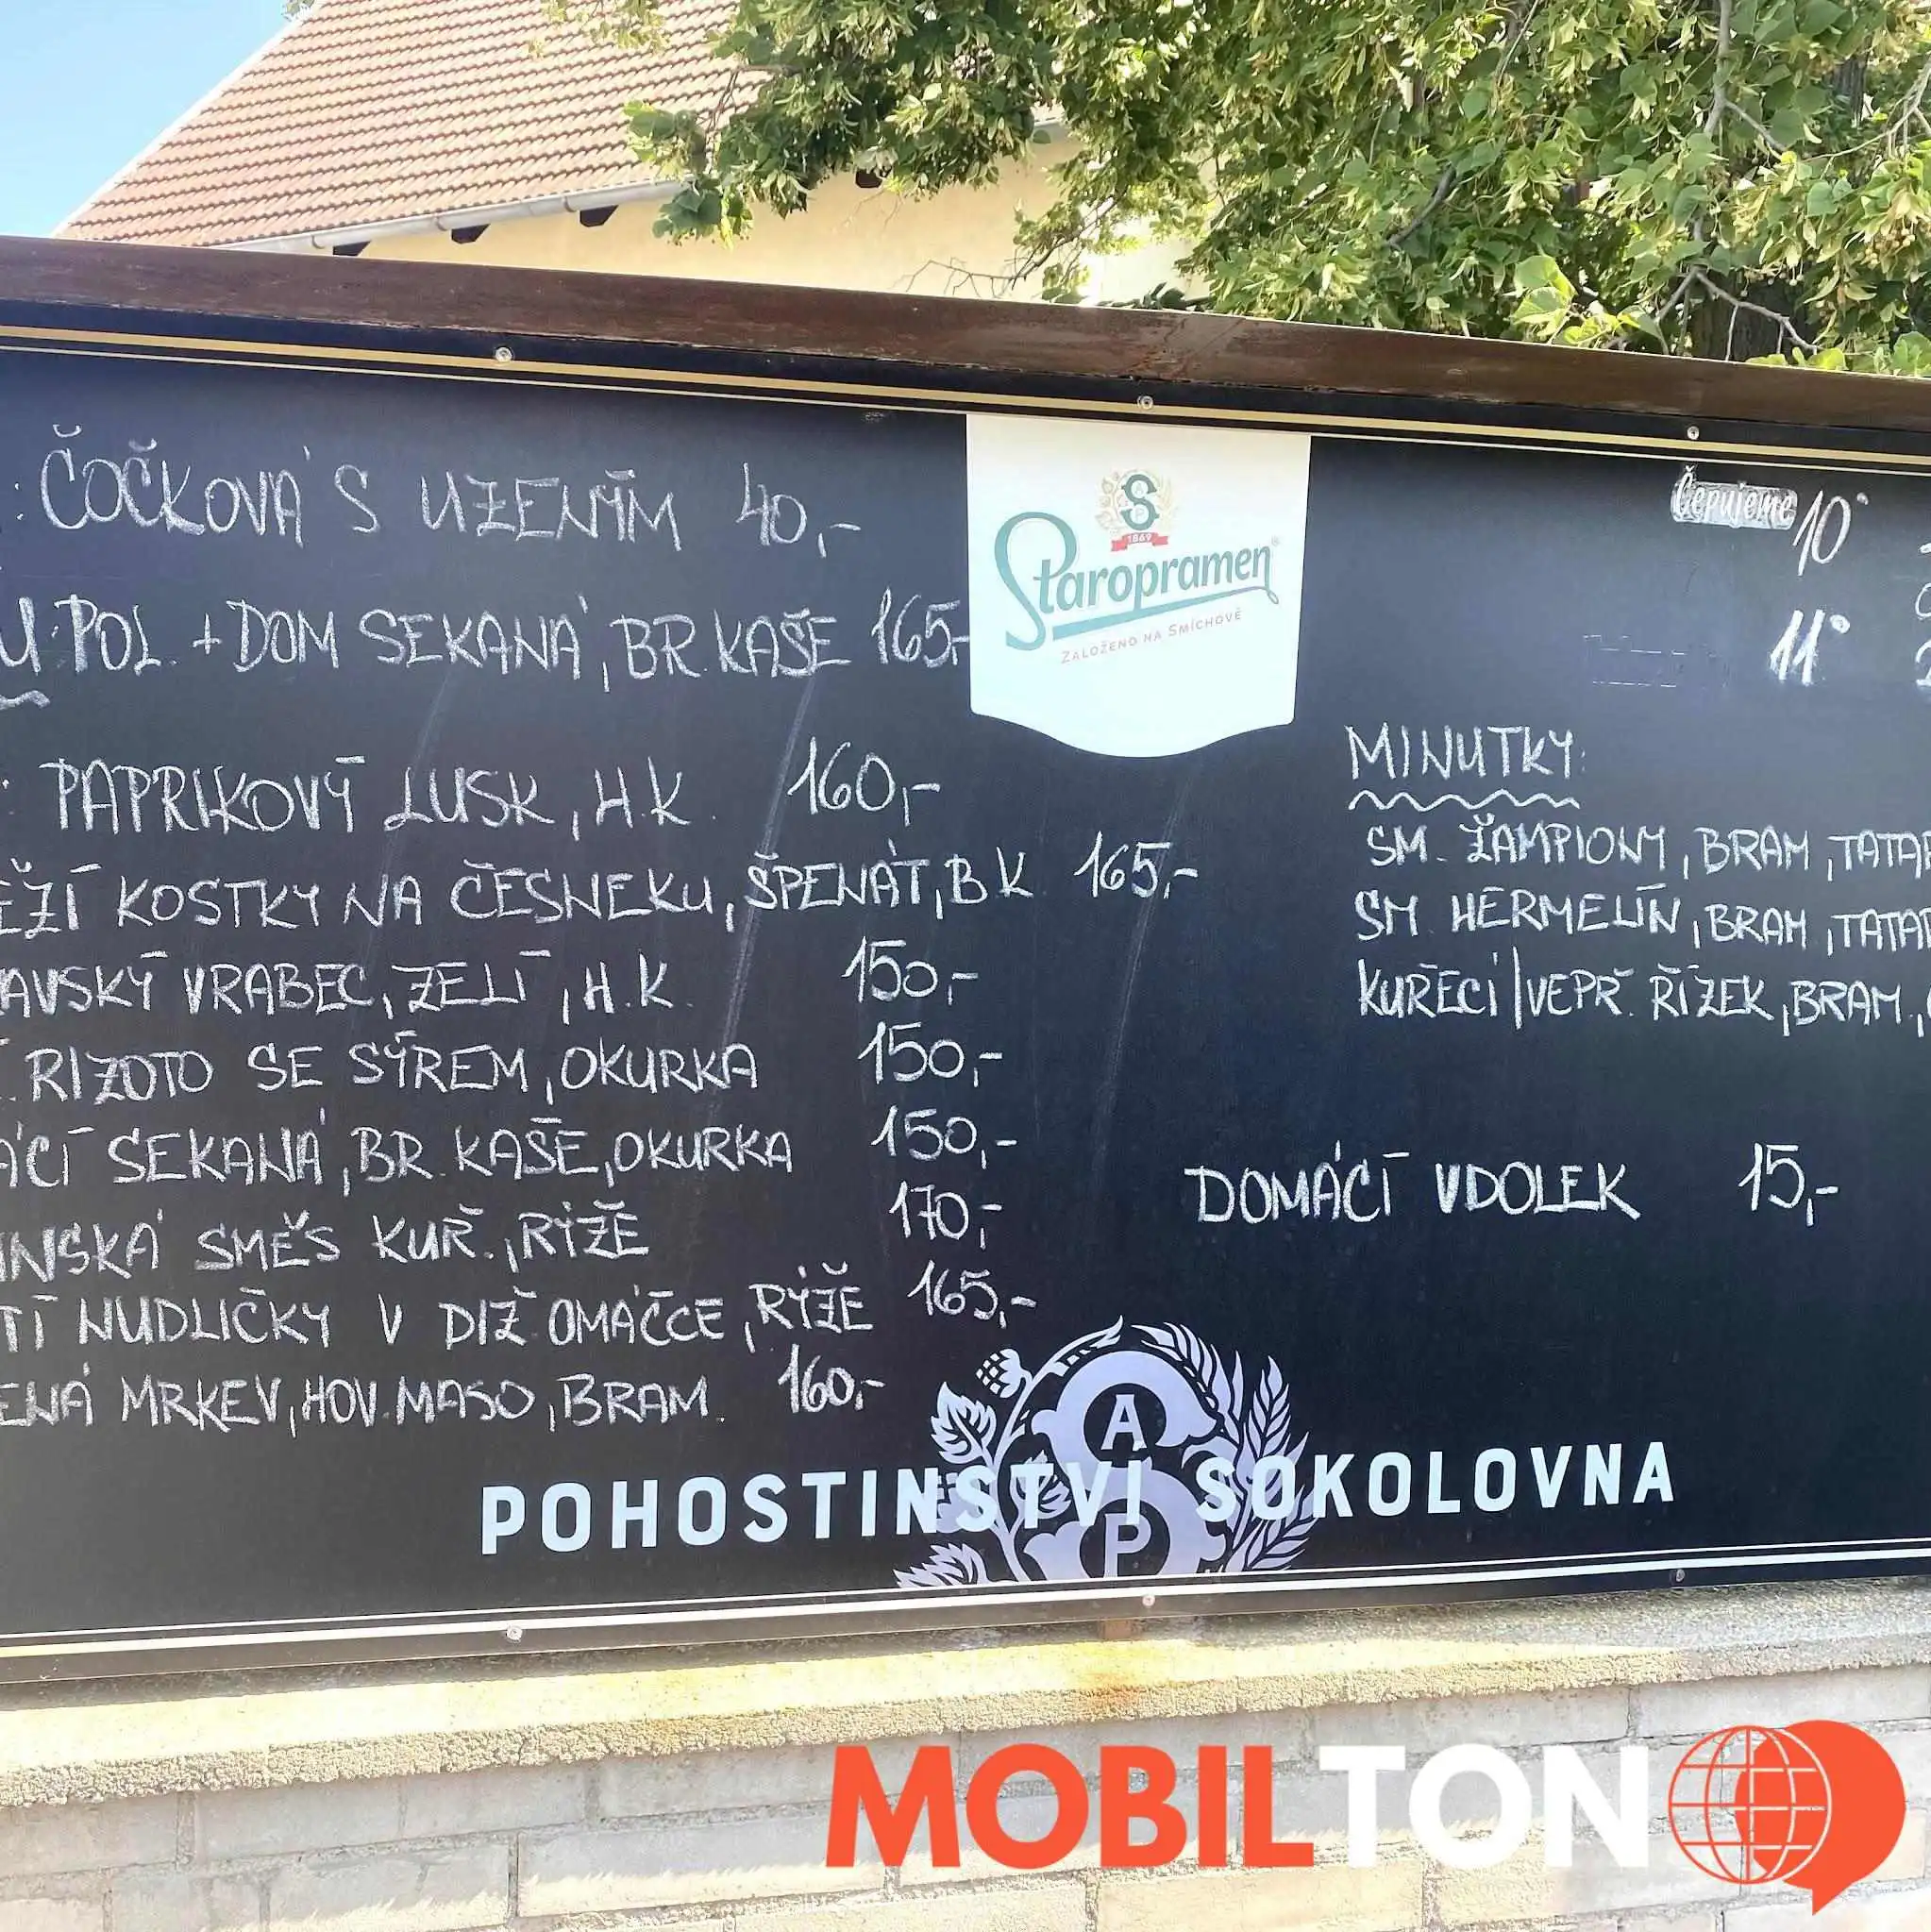 : ČOČKOVÁ S UZENÝM 40,-
U: POL. + DOM SEKANÁ, BR. KAŠE 165,-
: PAPRIKOVÝ LUSK, H.K. 160,-
KOSTKY NA ČESNEKU, ŠPENÁT, B.K 165,-
AVSKÝ VRABEC, ZELÍ, H.K. 150,-
RIZOTO SE SÝREM, OKURKA 150,-
ÁCÍ SEKANÁ, BR. KAŠE, OKURKA 150,-
INSKÁ SMĚS KUŘ., RÝŽE 170,-
TÍ NUDLIČKY V DIŽ. OMÁČCE, RÝŽE 165,-
ENÁ MRKEV, HOV. MASO, BRAM. 160,-
S
1869
Staropramen®
ZALOŽENO NA SMÍCHOVĚ
Čepujeme 10°
11°
MINUTKY:
SM. ŽAMPIONY, BRAM, TATAR
SM. HERMELÍN, BRAM, TATAR
KUŘECÍ/VEPŘ. ŘÍZEK, BRAM.,
DOMÁCÍ VDOLEK 15,-
A
P
POHOSTINSTVI SOKOLOVNA
MOBILTON